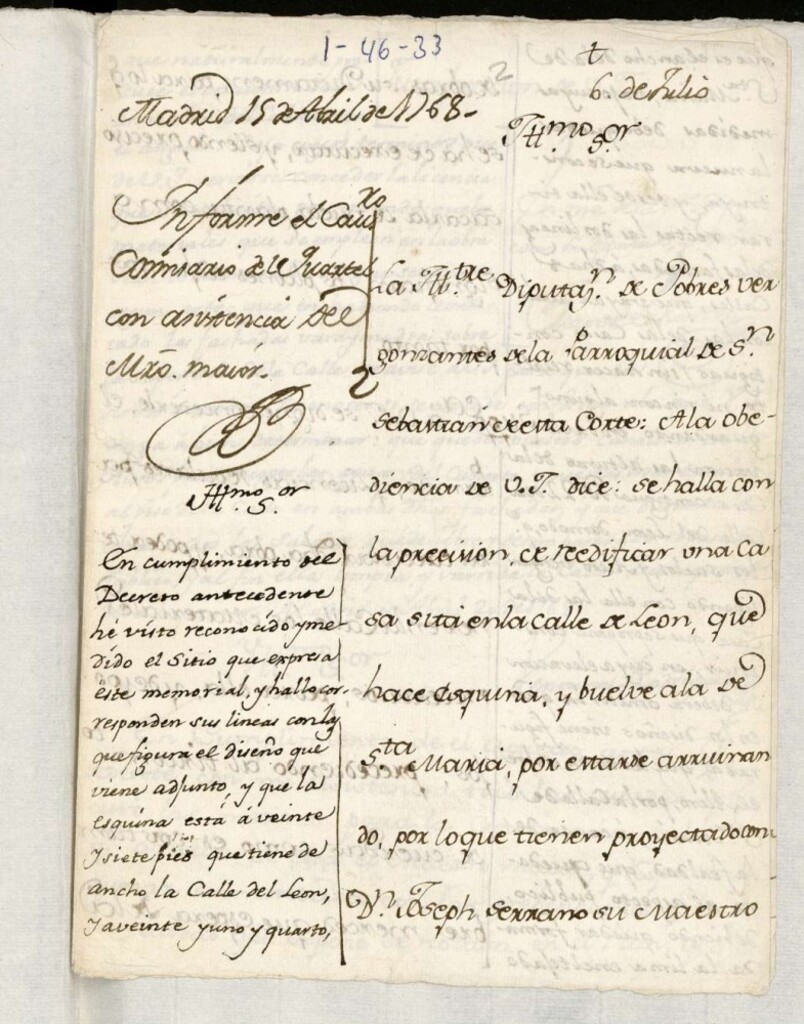 1-46-33
2
t
6. de Julio
Madrid 15 de Abril de 1768.
Yllmo. Sor.
Informe el Cavro.
Comisario del Quartel
con asistencia del
Mro. maior.
Yllmo. Sor.
En cumplimiento del
Decreto antecedente
hé visto reconocido y me-
dido el Sitio que expresa
este memorial, y hallo cor-
responden sus lineas con lo
que figura el diseño que
viene adjunto, y que la
esquina está á veinte
y siete pies que tiene de
ancho la Calle del Leon,
y a veinte y uno y quarto,
La Yltre. Diputan. de Pobres ver
gonzantes de la Parroquial de Sn.
Sebastian de esta Corte: A la obe-
diencia de V.I. dice: se halla con
la precision, de reedificar una ca
sa sita en la calle de Leon, que
hace esquina, y buelve a la de
Sta. Maria, por estarse arruinan
do, por lo que tienen proyectado con
Dn. Joseph Serrano su Maestro